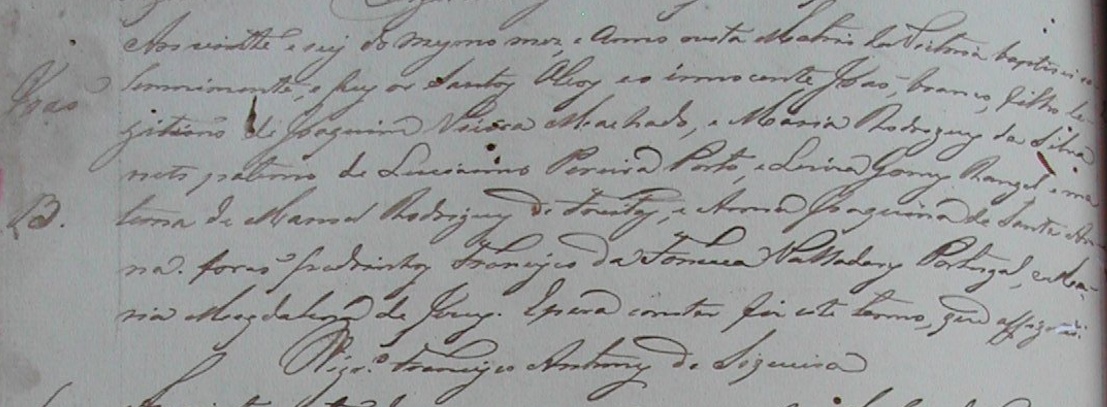 Aos vinte e seis do mesmo mez, e Anno nesta Matriz da Victoria baptizei so-
João
lemnimente, e puz os Santos Oleos ao innocente João, branco, filho le-
gitimo de Joaquim Vieira Machado, e Maria Rodrigues da Silva
neto paterno de Luciano Pereira Porto, e Gomes Rangel, e ma
B.
terno de Manoel Rodrigues de Freitas, e Anna Joaquina de Santa An
na. forão padrinhos Francisco da Fonseca Valladares Portugal, e Ma-
ria Magdalena de Jesus. E para constar fiz este termo, que assignei.
Vigr.º Francisco Antunes de Siqueira